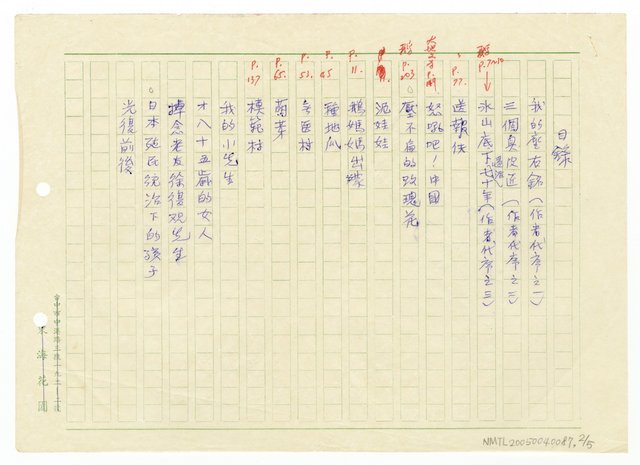 目錄
我的座右銘(作者代序之一)
三個臭皮匠(作者代序之二)
冰山底下
七十年(作者代序之三)
送報伕
怒吼吧!中國
壓不扁的玫瑰花
泥娃娃
鵝媽媽出嫁
種地瓜
萌芽
模範村
我的小先生
才八十五歲的女人
悼念老友徐復觀先生
日本殖民統治下的孩子
光復前後
P.77.
P.11.
P.45
P.53.
P.65.
P.137
東海花園
NMTL20050040087, 2/5